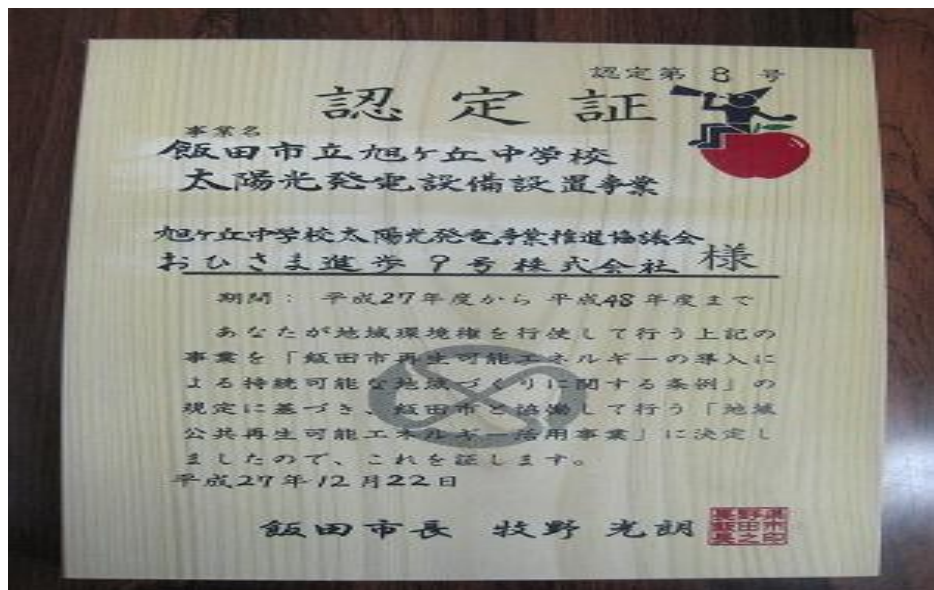 認定第 8 号
認定証
事業名
飯田市立旭ケ丘中学校
太陽光発電設備設置事業
旭ケ丘中学校太陽光発電事業推進協議会
おひさま進歩9号株式会社 様
期間： 平成27年度から 平成48年度まで
あなたが地域環境権を行使して行う上記の
事業を「飯田市再生可能エネルギーの導入に
よる持続可能な地域づくりに関する条例」の
規定に基づき、飯田市と協働して行う「地域
公共再生可能エネルギー活用事業」に決定し
ましたので、これを証します。
平成27年12月22日
飯田市長 牧野 光朗